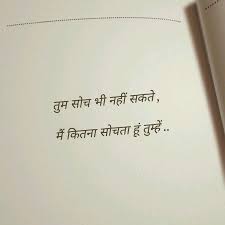 तुम सोच भी नहीं सकते,
मैं कितना सोचता हूं तुम्हें..